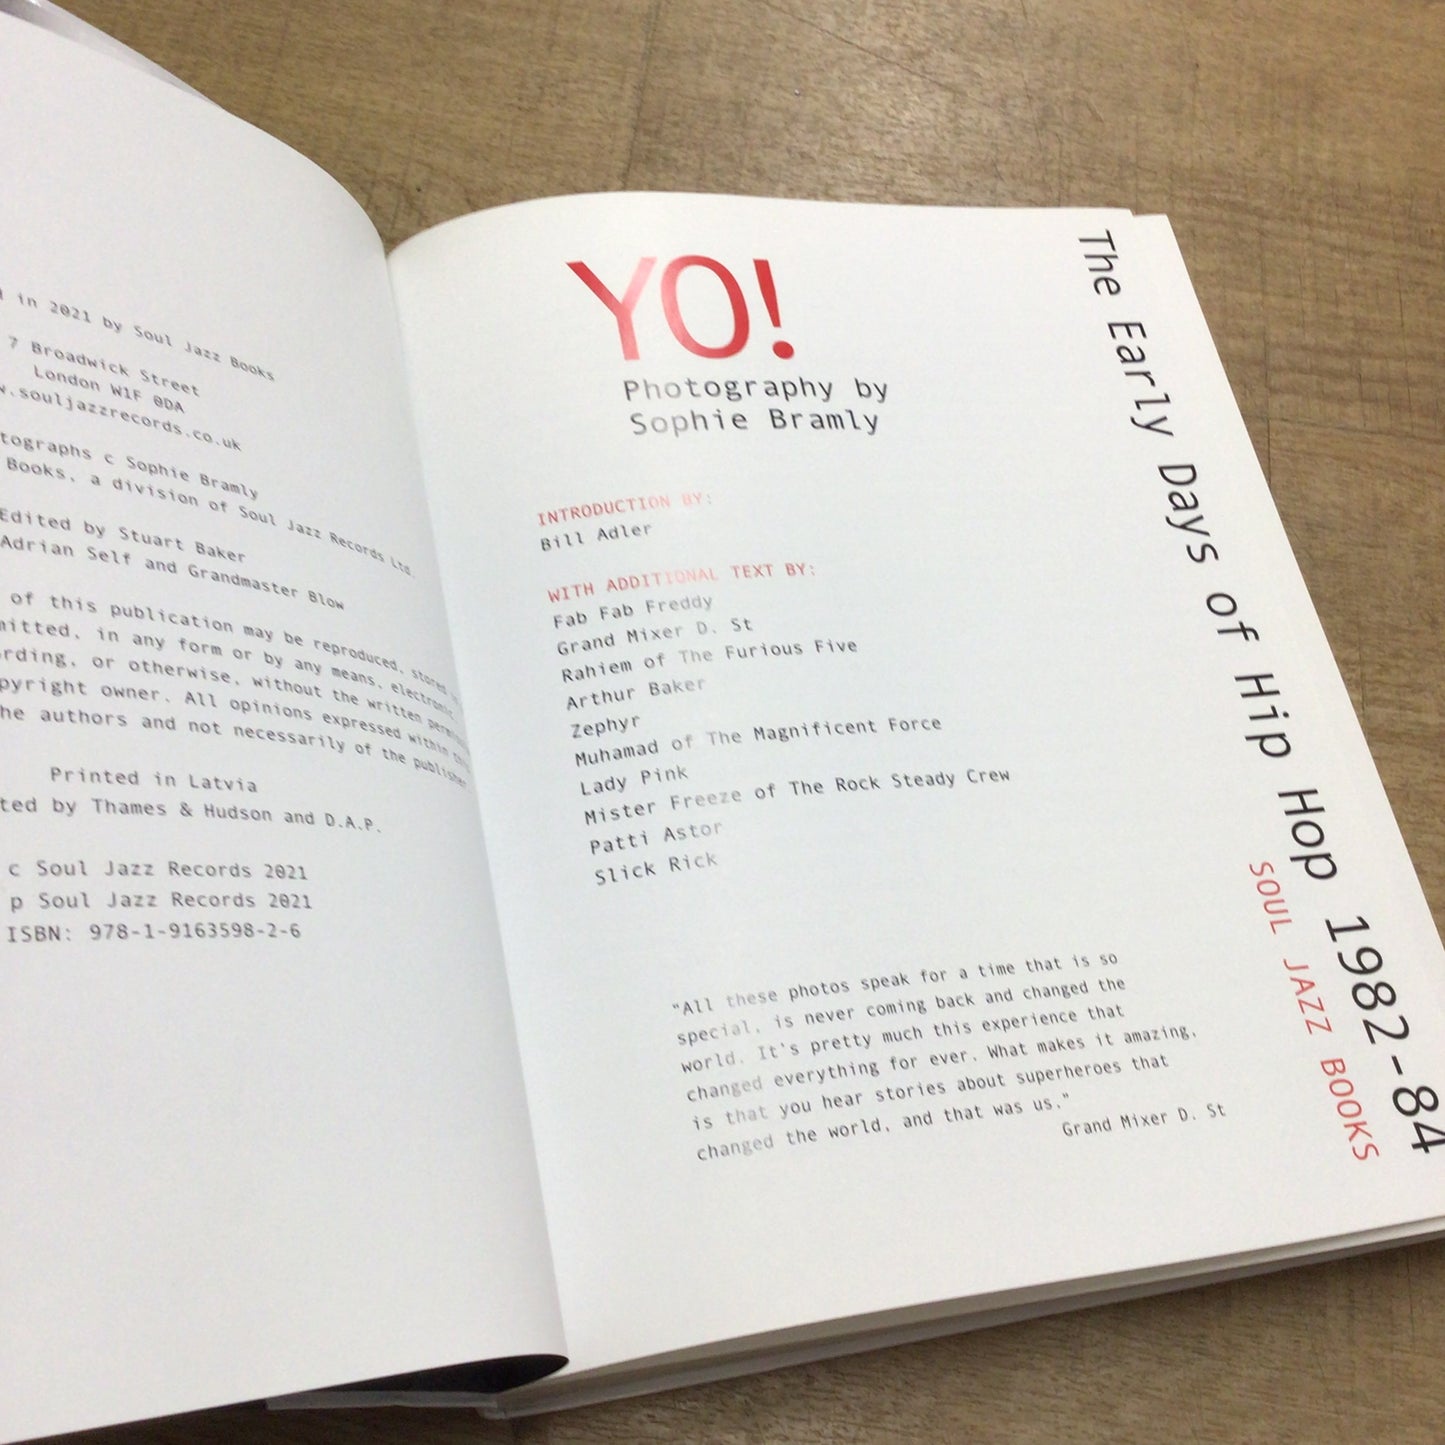 in 2021 by Soul Jazz Books
7 Broadwick Street
London W1F 0DA
.souljazzrecords.co.uk
c Sophie Bramly
Books, a division of Soul Jazz Records Ltd.
Edited by Stuart Baker
Adrian Self and Grandmaster Blow
of this publication may be reproduced, stored
in any form or by any means, electronic,
or otherwise, without the written
owner. All opinions expressed within
the authors and not necessarily of the publisher
Printed in Latvia
by Thames & Hudson and D.A.P.
c Soul Jazz Records 2021
p Soul Jazz Records 2021
ISBN: 978-1-9163598-2-6
YO!
Photography by
Sophie Bramly
INTRODUCTION BY:
Bill Adler
WITH ADDITIONAL TEXT BY:
Fab Fab Freddy
Grand Mixer D. St
Rahiem of The Furious Five
Arthur Baker
Zephyr
Muhamad of The Magnificent Force
Lady Pink
Mister Freeze of The Rock Steady Crew
Patti Astor
Slick Rick
"All these photos speak for a time that is so
special, is never coming back and changed the
world. It's pretty much this experience that
changed everything for ever. What makes it amazing,
is that you hear stories about superheroes that
changed the world, and that was us."
Grand Mixer D. St
The Early Days of Hip Hop 1982-84
SOUL JAZZ BOOKS